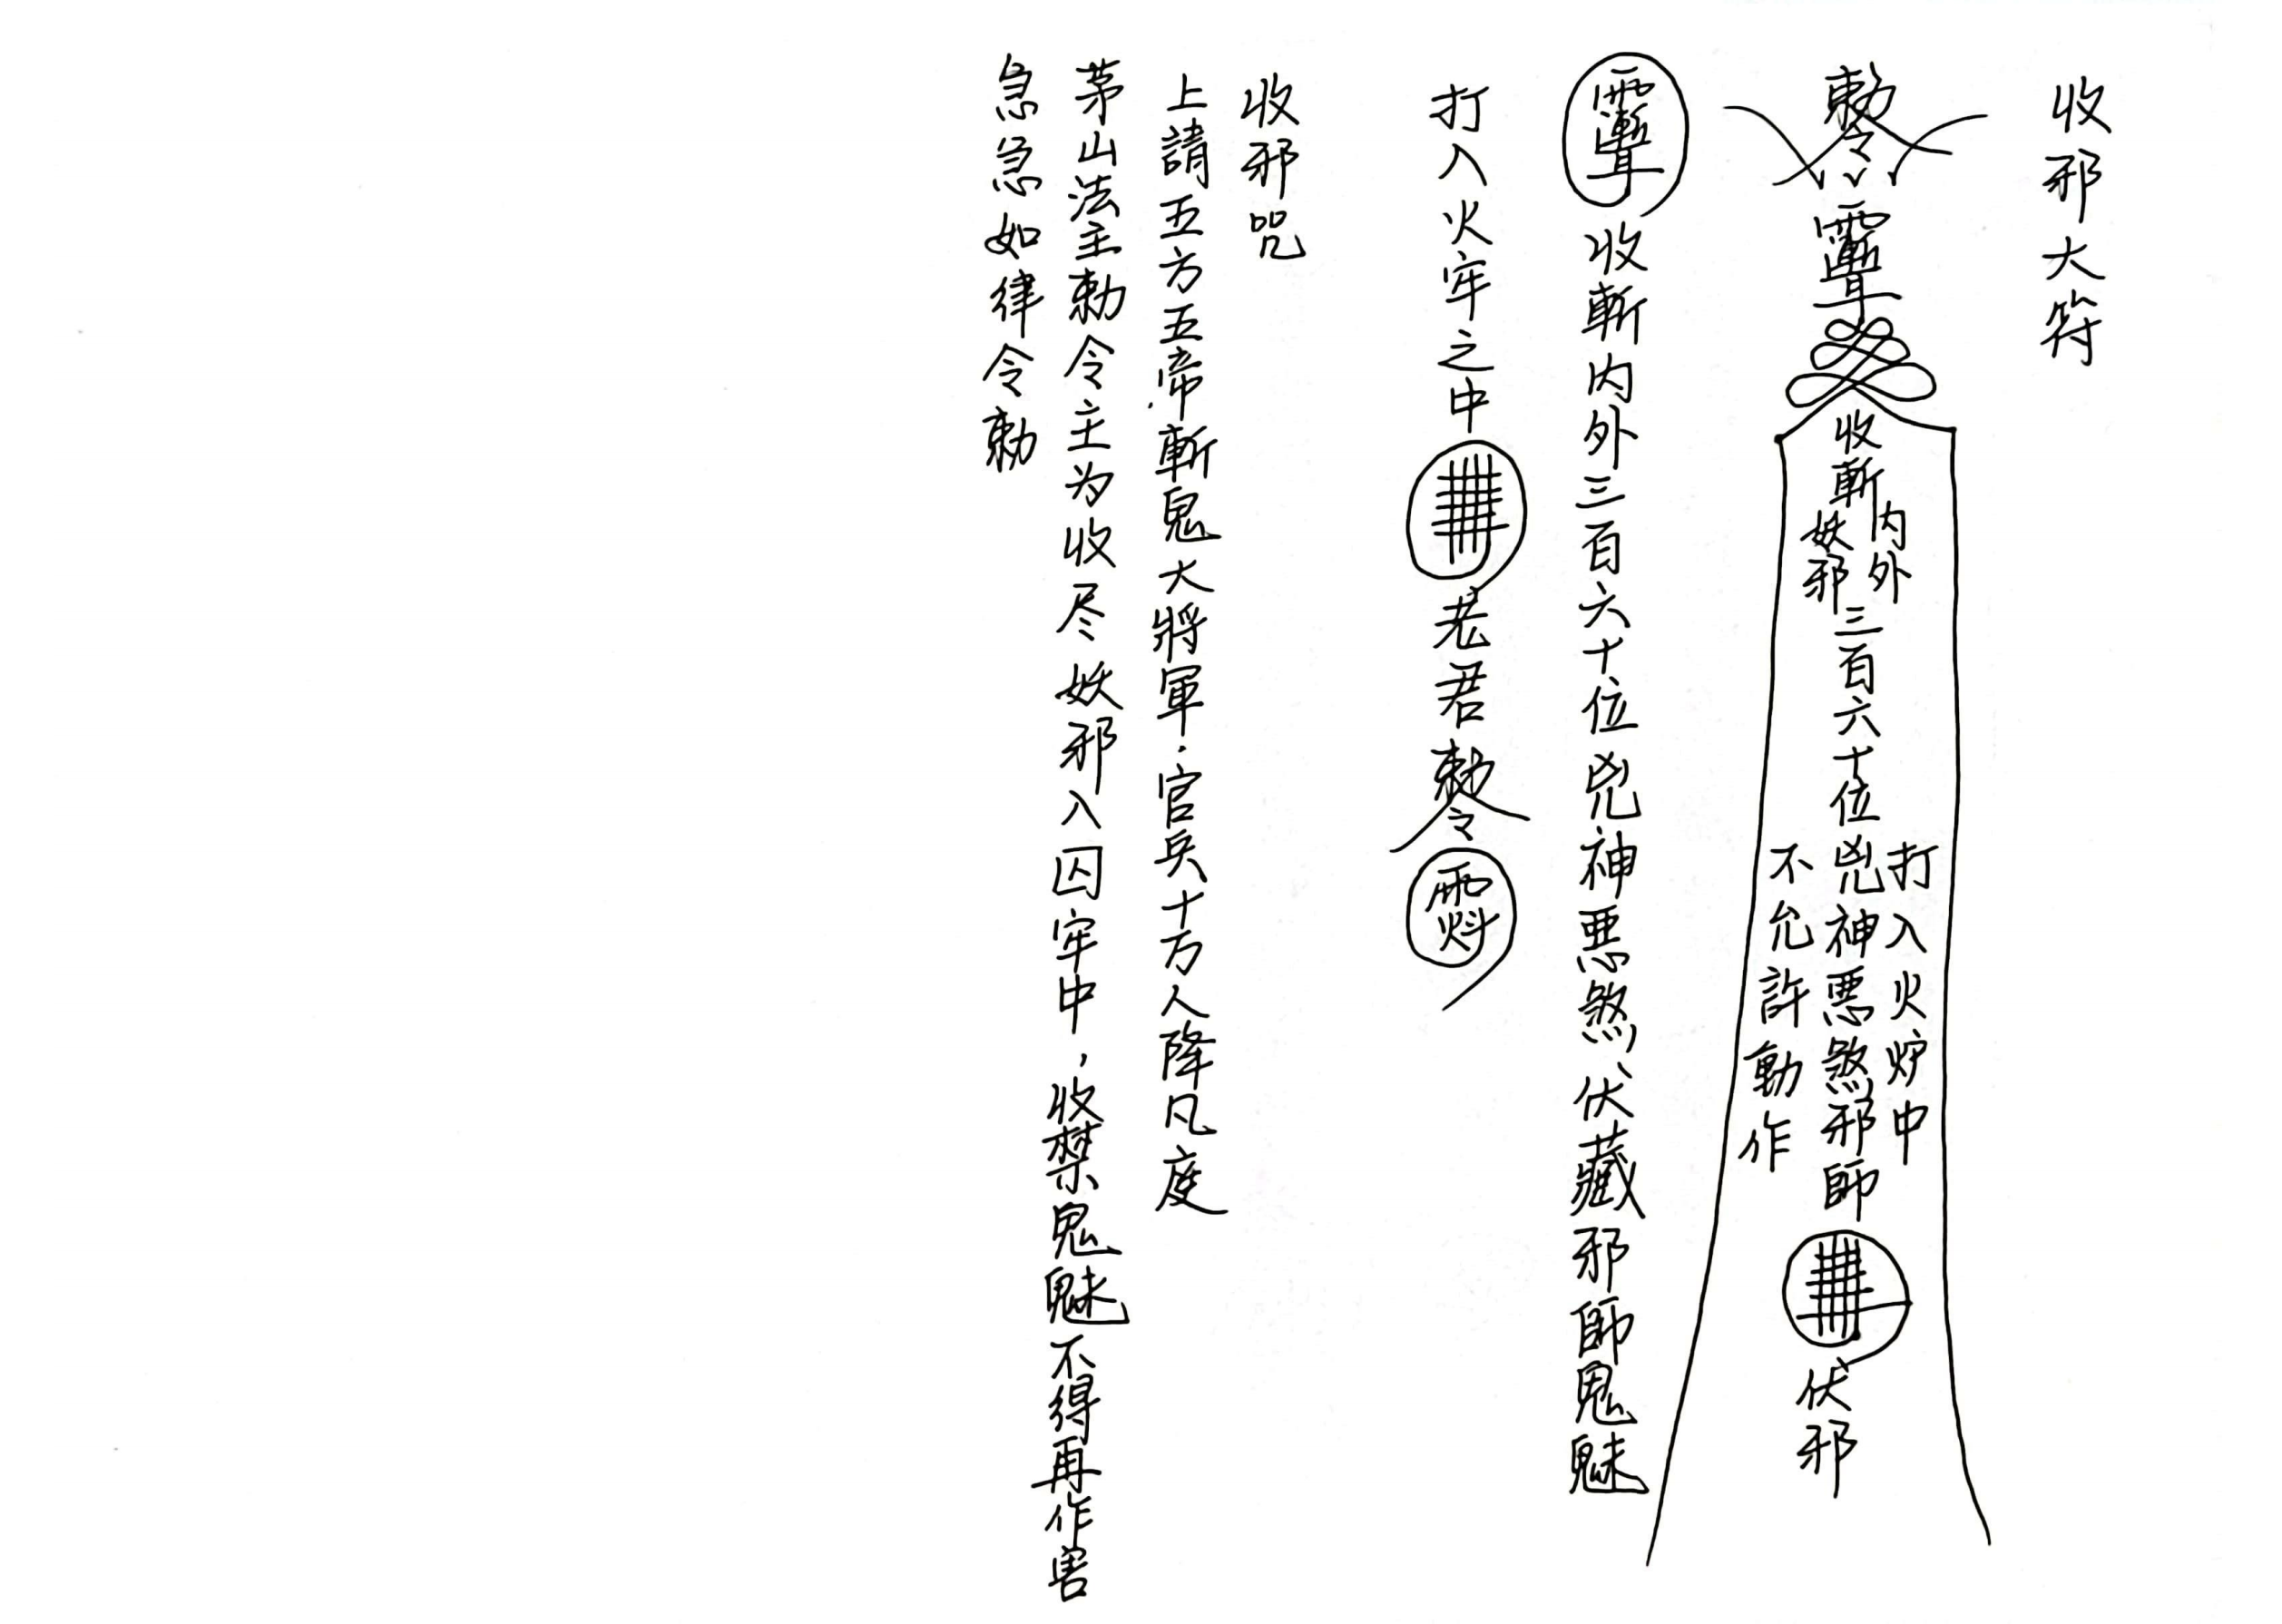 收邪大符
勅令
收斬
内外
妖邪
三百六十位兇神悪煞邪師
打入火炉中
不允許動作
伏邪
收斬内外三百六十位兇神悪煞、伏藏邪師鬼魅
打入火牢之中
老君勅令
收邪咒
上請五方五帝斬鬼大將軍.官兵十万人降凡庭
茅山法主勅令主为收尽妖邪入囚牢中，收禁鬼魅不得再作害
急急如律令勅